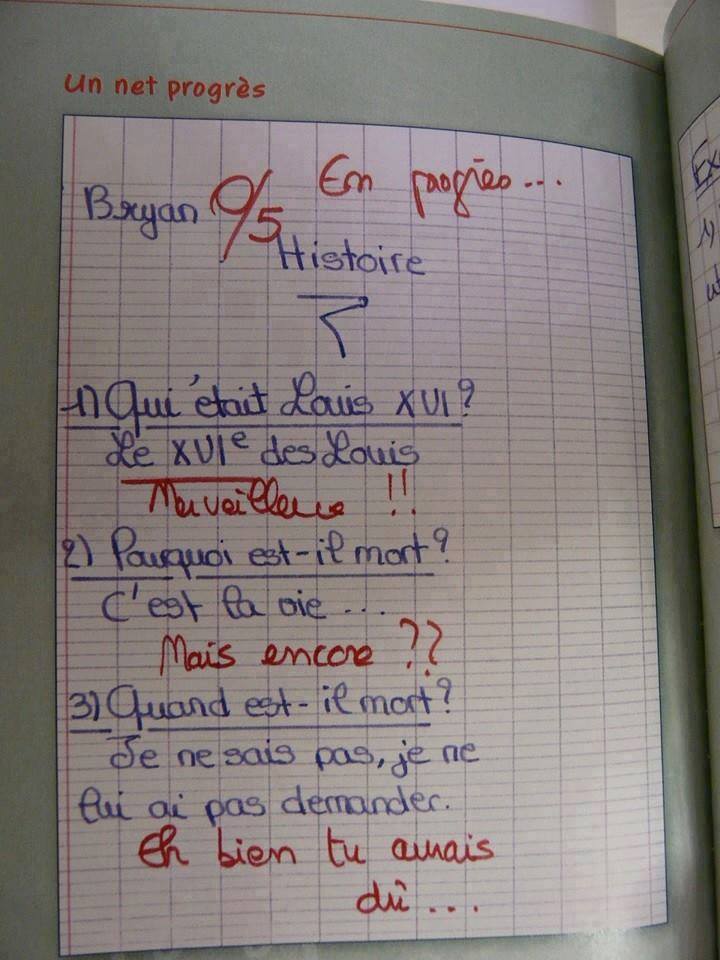 Un net progrès
Bryan 0/5 En progrès...
Histoire
1) Qui était Louis XVI?
Le XVIe des Louis
Merveilleux !!
2) Pourquoi est-il mort?
C'est la vie...
Mais encore ??
3) Quand est-il mort?
Je ne sais pas, je ne
lui ai pas demander.
Eh bien tu aurais
dû...
1)